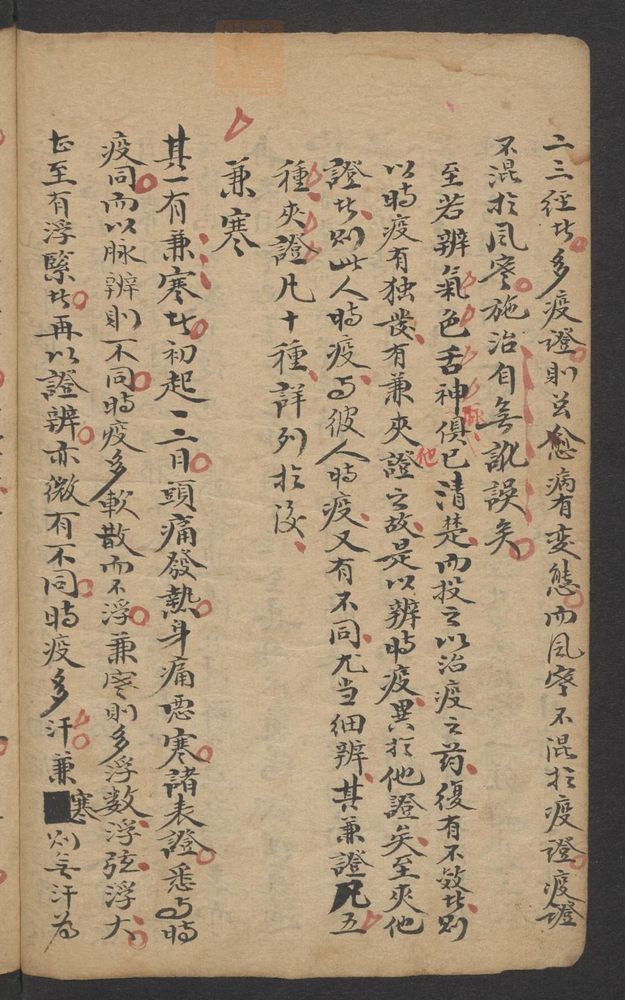 二三經者多疫證則並愈病有变態而风寒不混於疫證疫證
不混於风寒施治自無訛誤矣
至若辨氣色舌神脈俱已清楚而投之以治疫之药復有不效者则
以時疫有独發有兼夾他證之故是以辨時疫異於他證矣至夾他
證者则此人時疫与彼人時疫又有不同尤当细辨其兼證凡五
種夾證凡十種詳列於後
兼寒
其一有兼寒者初起一二日頭痛發熱身痛惡寒諸表證悉与時
疫同而以脉辨则不同時疫多軟散而不浮兼寒则多浮数浮弦浮大
甚至有浮緊者再以證辨亦微有不同時疫多汗兼寒则無汗为